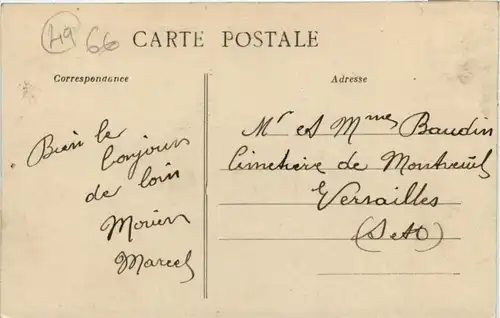 49
66
CARTE POSTALE
Correspondance
Adresse
Bien le
bonjour
de loin
Marcel
Mr et Mmes Baudin
Cimetière de Montreuil
Versailles
(S et O)